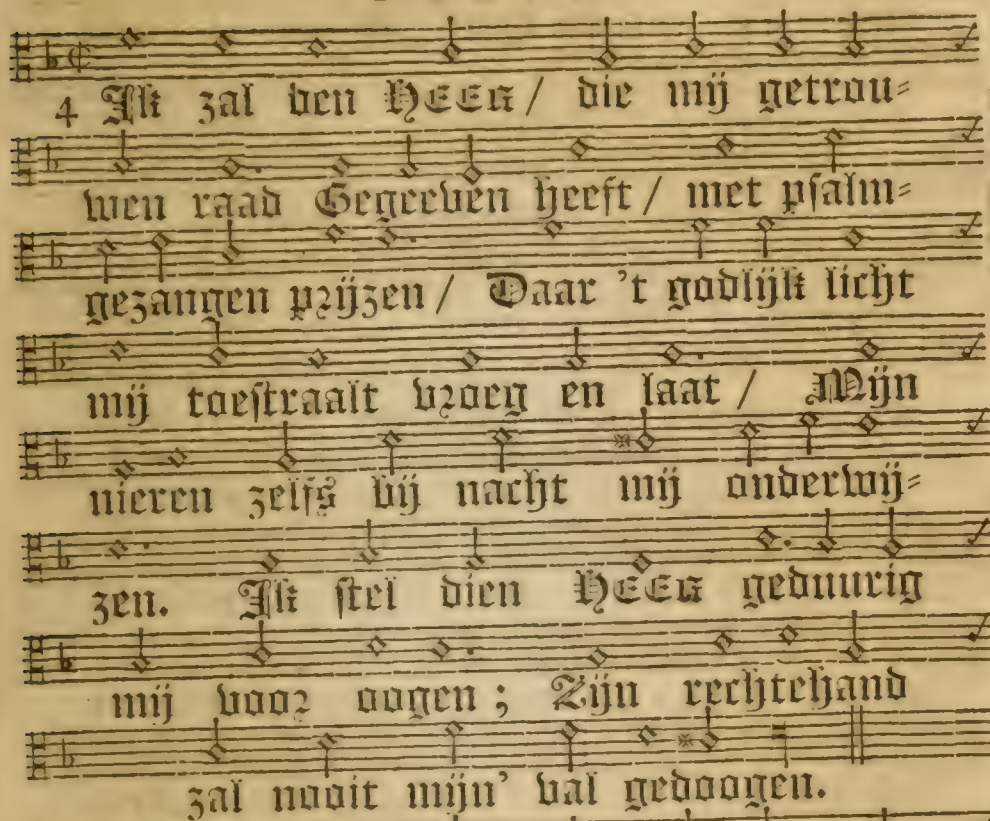 4 Ik zal den HEER / die mij getrou=
wen raad Gegeeven heeft / met psalm=
gezangen prijzen / Daar 't godlijk licht
mij toestraalt vroeg en laat / Mijn
nieren zelfs bij nacht mij onderwij=
zen. Ik stel dien HEER geduurig
mij voor oogen; Zijn rechtehand
zal nooit mijn' val gedoogen.